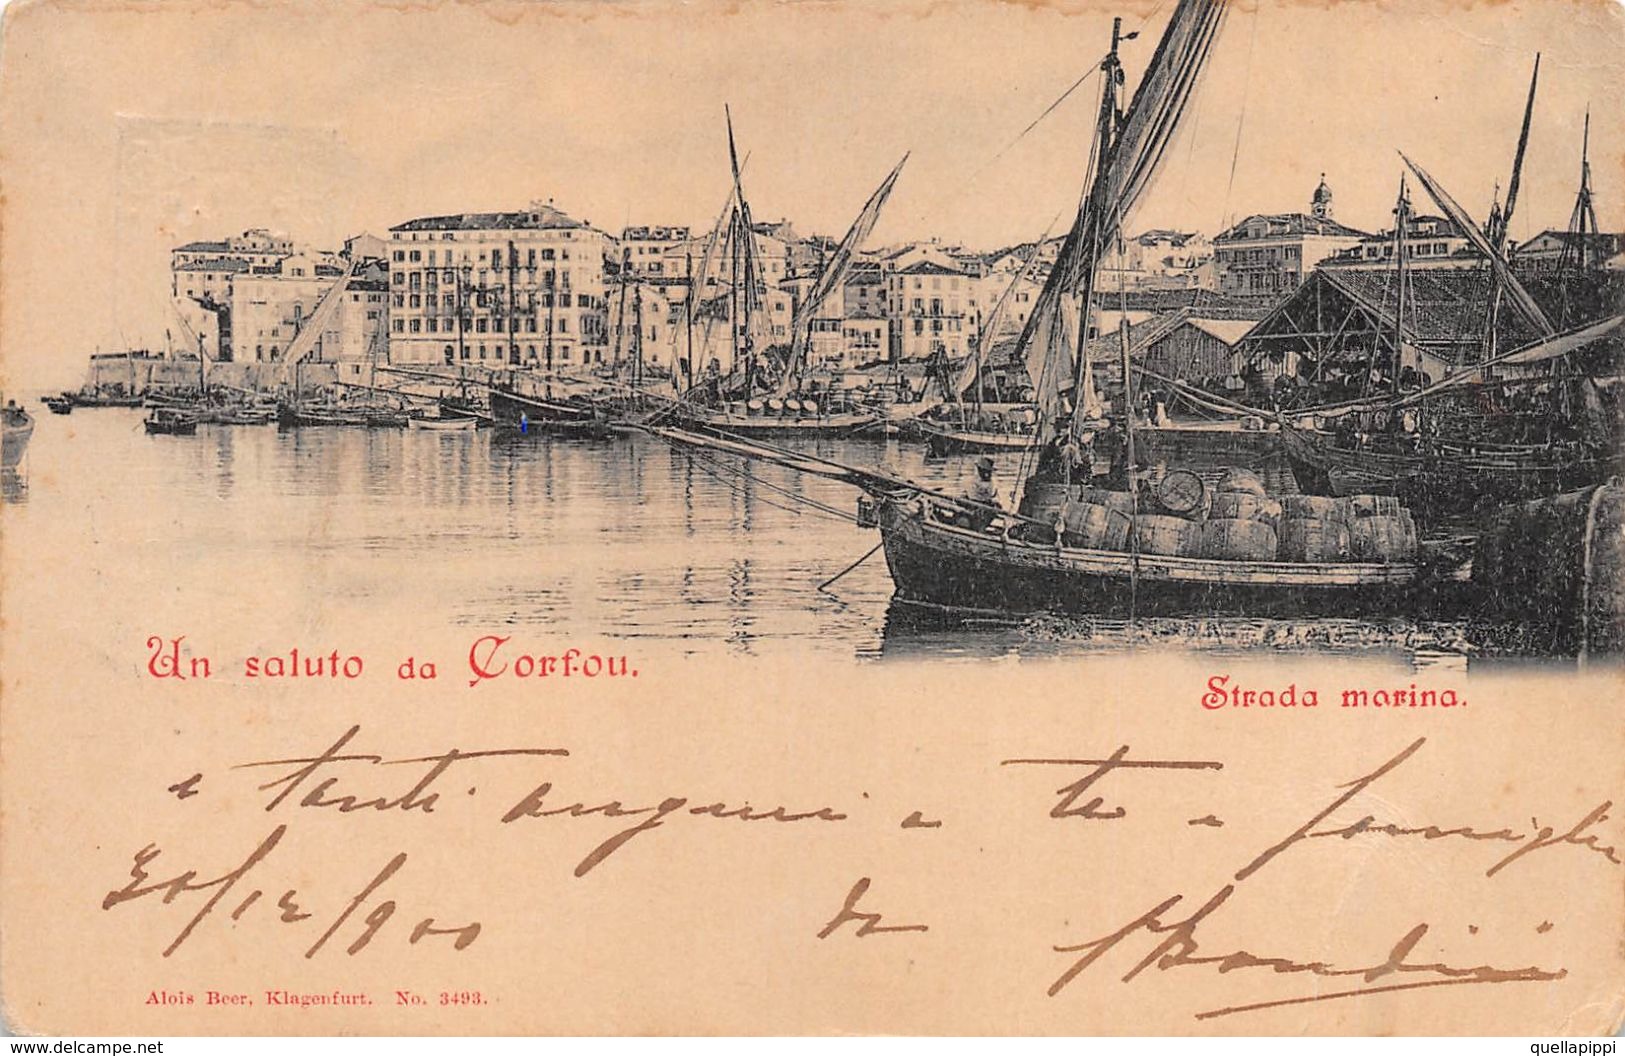 Un saluto da Corfou.
Strada marina.
e tanti auguri a te e famiglia
30/12/900 da
Bondini
Alois Beer, Klagenfurt. No. 3493.
delcampe.net
quellapippi